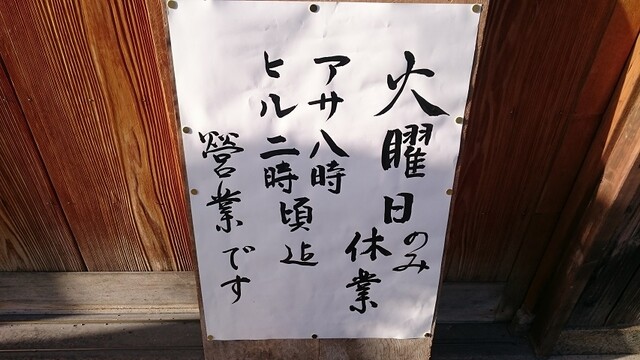 火曜日のみ
休業
アサ八時
ヒル二時頃迠
営業です